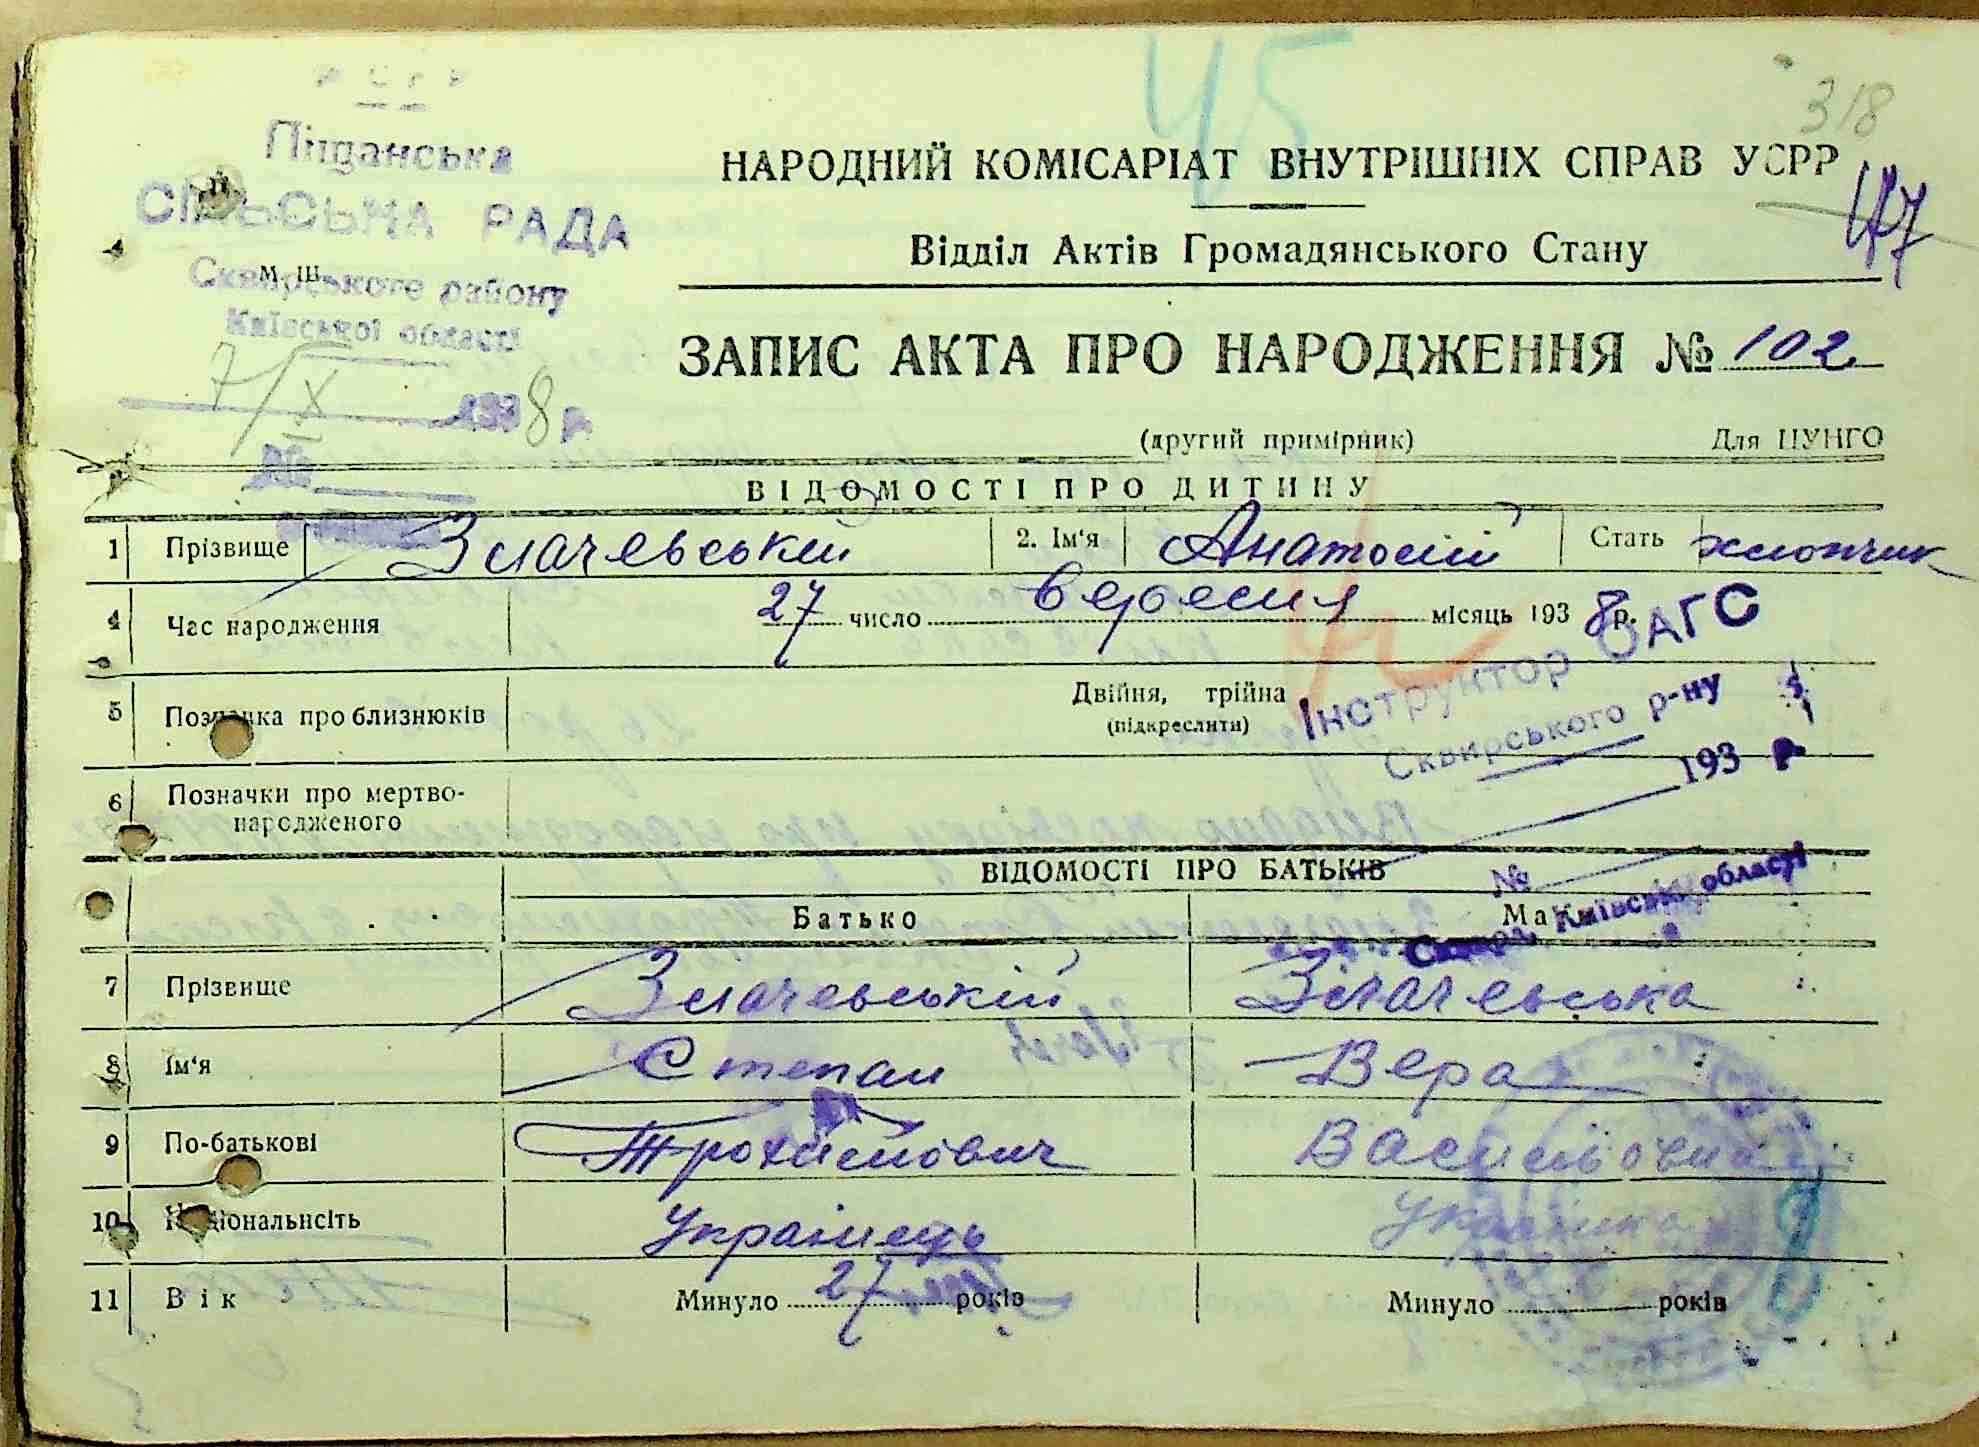 УСРР
Піщанська
СІЛЬСЬКА РАДА
Сквирського району
Київської області
7/X 1938 р.
№
м. ш.
45
318
НАРОДНИЙ КОМІСАРІАТ ВНУТРІШНІХ СПРАВ УСРР
Відділ Актів Громадянського Стану
ЗАПИС АКТА ПРО НАРОДЖЕННЯ № 102
(другий примірник) Для ЦУНГО
ВІДОМОСТІ ПРО ДИТИНУ
1 Прізвище Злачевській 2. Ім'я Анатолій Стать хлопчик
4 Час народження 27 число вересня місяць 1938 р.
5 Позначка про близнюків Двійня, трійна
(підкреслити)
Інструктор ОАГС
Сквирського р-ну
193 р.
№
Сквира, Київської області
6 Позначки про мертво-
народженого
ВІДОМОСТІ ПРО БАТЬКІВ
Батько Ма
7 Прізвище Злачевській Злачевська
8 Ім'я Степан Вера
9 По-батькові Трохимович Василівна
10 Національнсіть Українець Українка
11 Вік Минуло 27 років Минуло років